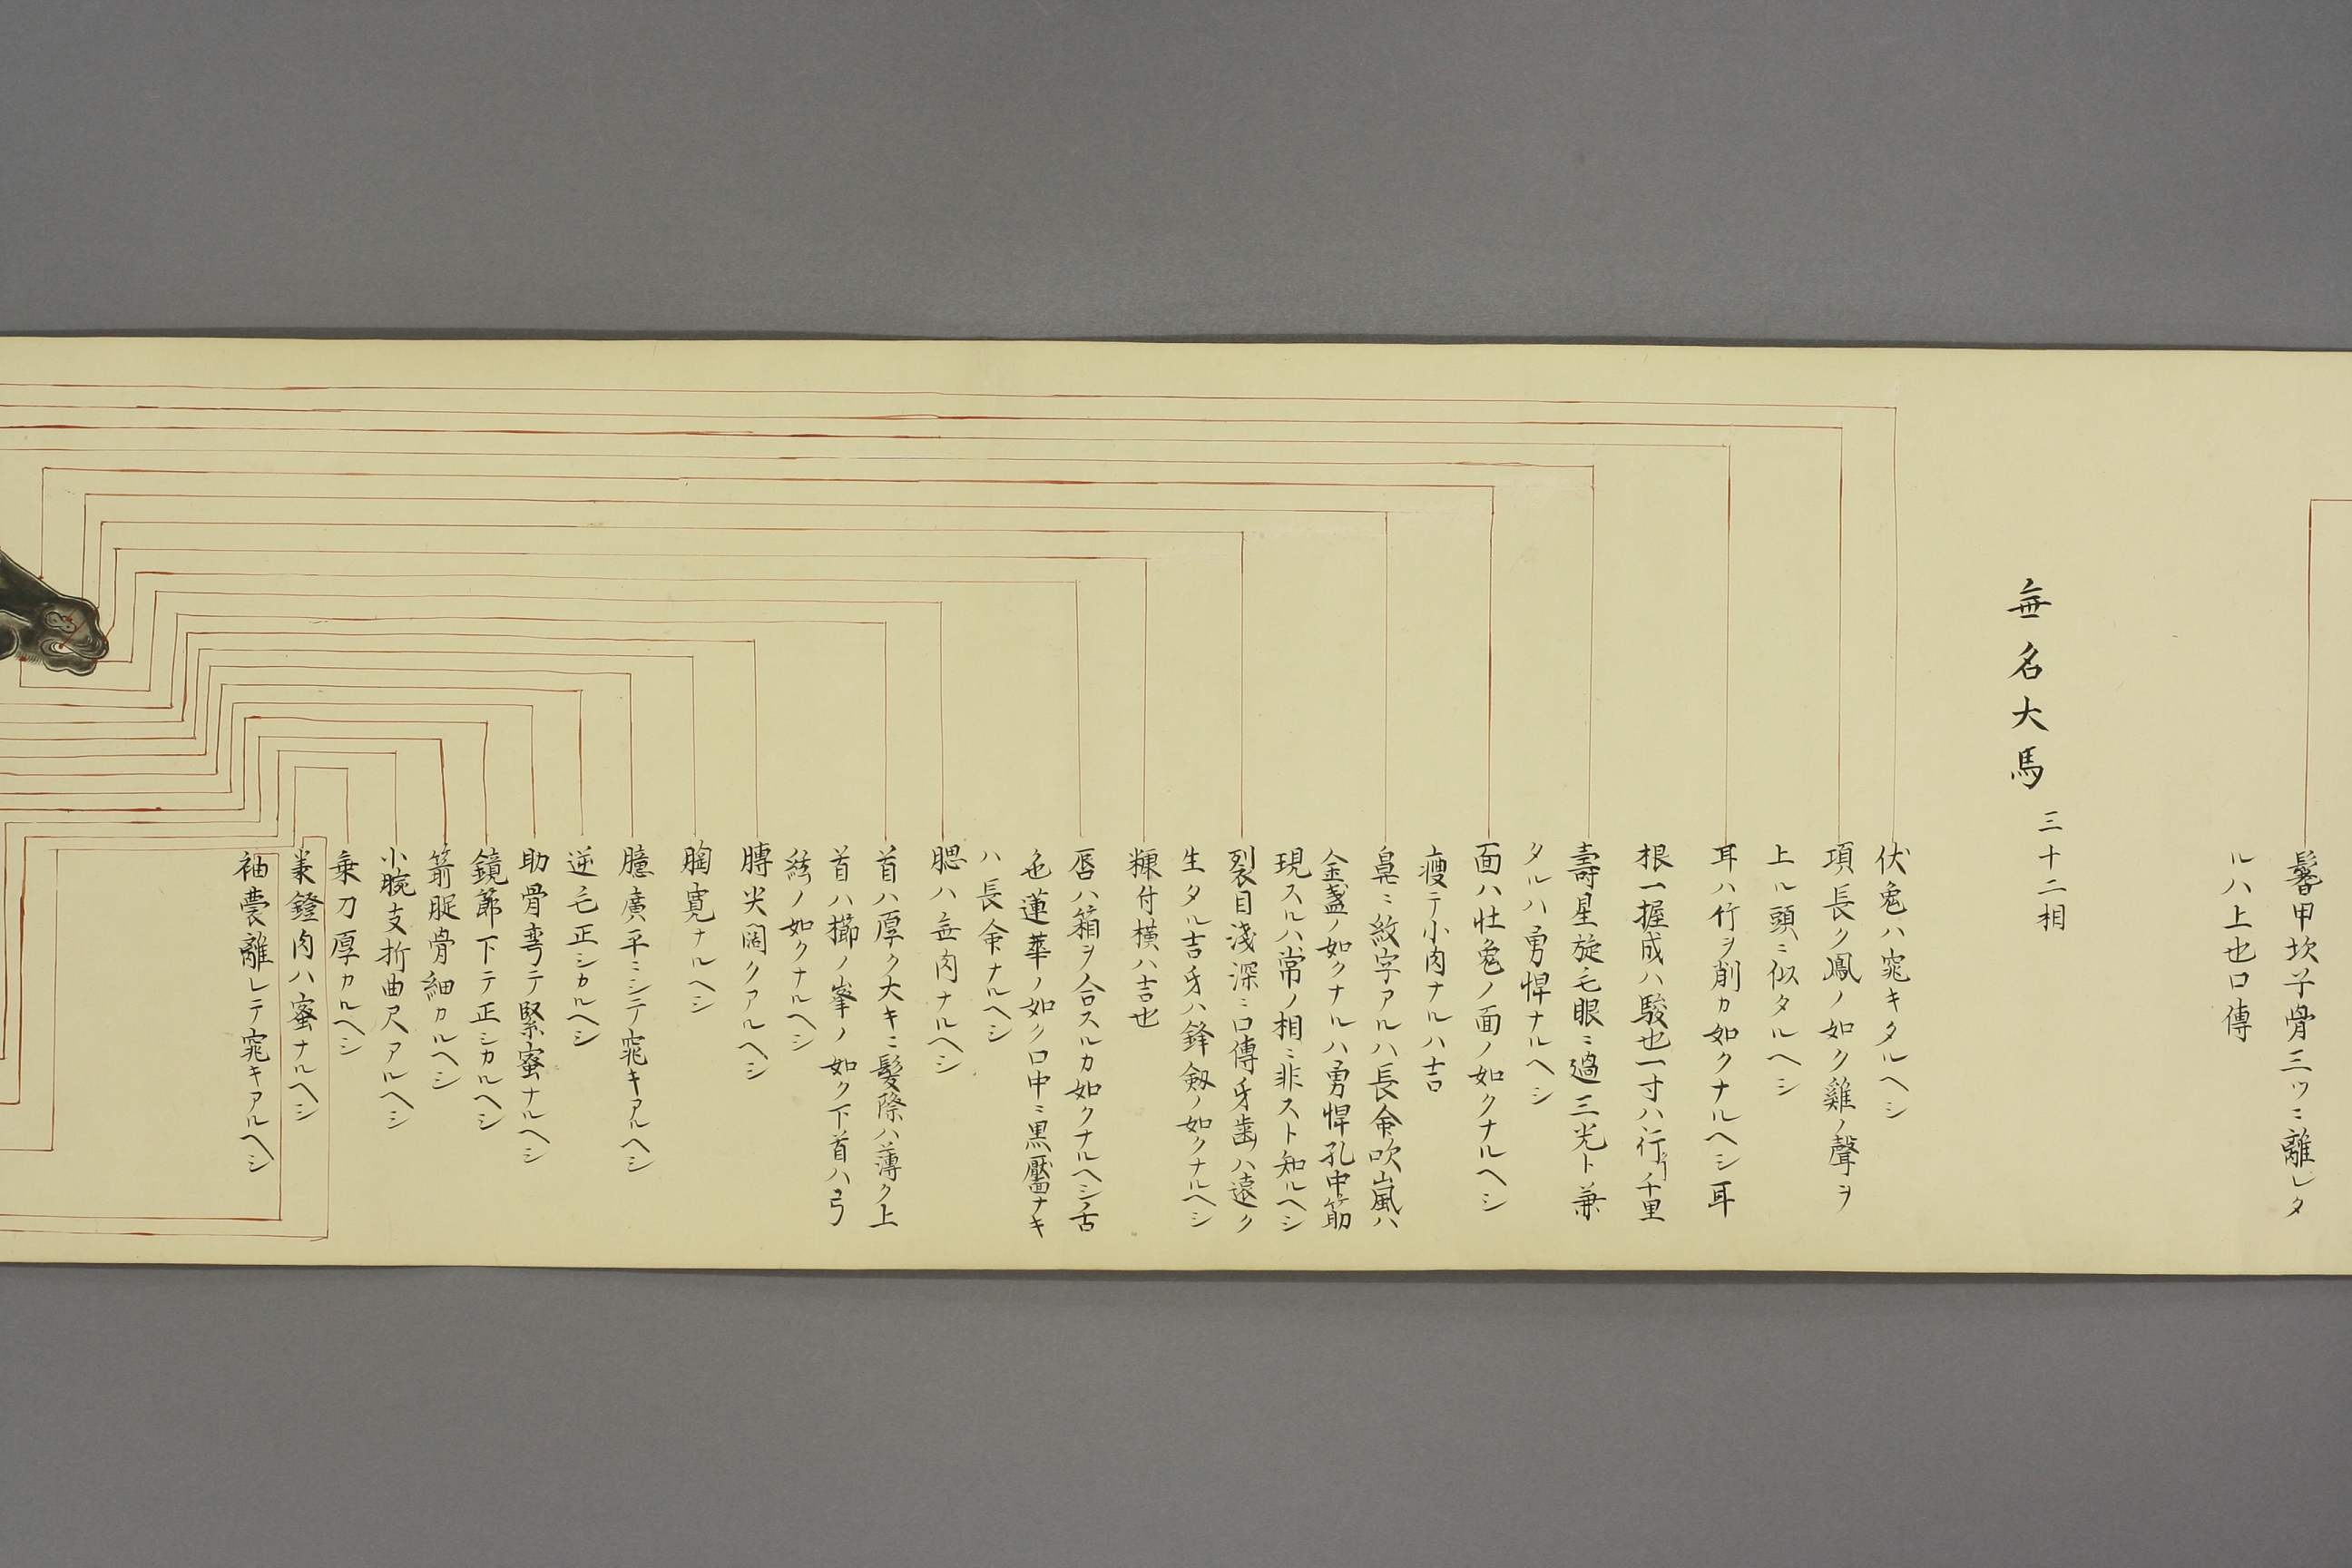 鬐甲坎子骨三ツニ離レタ
ルハ上也口傳
無名大馬
三十二相
伏兔ハ窕キタルヘシ
項長ク鳳ノ如ク雞ノ聲ヲ
上ル頭ニ似タルヘシ
耳ハ行ヲ削カ如クナルヘシ耳
根一握成ハ駿也一寸ハ行千里
壽星旋毛眼ニ過三光ト兼
タルハ勇悍ナルヘシ
面ハ壮兔ノ面ノ如クナルヘシ
瘦テ小肉ナルハ吉
鼻ニ紋字アルハ長命吹嵐ハ
金盞ノ如クナルハ勇悍孔中筋
現スルハ常ノ相ニ非スト知ルヘシ
裂目淺深ニ口傳牙歯ハ遠ク
生タル吉牙ハ鋒劔ノ如クナルヘシ
糠付横ハ吉也
唇ハ箱ヲ合スルカ如クナルヘシ舌
色蓮華ノ如ク口中ニ黒靨ナキ
ハ長命ナルヘシ
腮ハ無肉ナルヘシ
首ハ厚ク大キニ髪際ハ薄ク上
首ハ櫛ノ峯ノ如ク下首ハ弓
絃ノ如クナルヘシ
膊尖濶クアルヘシ
胸寛ナルヘシ
臆廣平ニシテ窕キアルヘシ
逆毛正シカルヘシ
助骨弯テ緊蜜ナルヘシ
鏡節下テ正シカルヘシ
箭腉骨細カルヘシ
小腕支折曲尺アルヘシ
乗刀厚カルヘシ
鐙肉ハ蜜ナルヘシ
袖嚢離レテ窕キアルヘシ